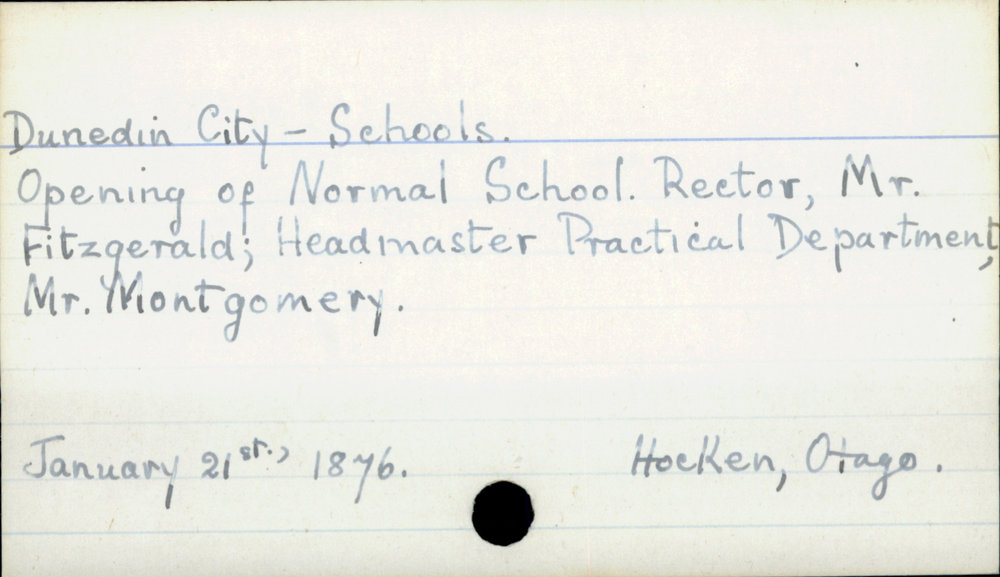 Dunedin City - Schools.
Opening of Normal School. Rector, Mr.
Fitzgerald; Headmaster Practical Department,
Mr. Montgomery.
January 21st., 1876. Hocken, Otago.